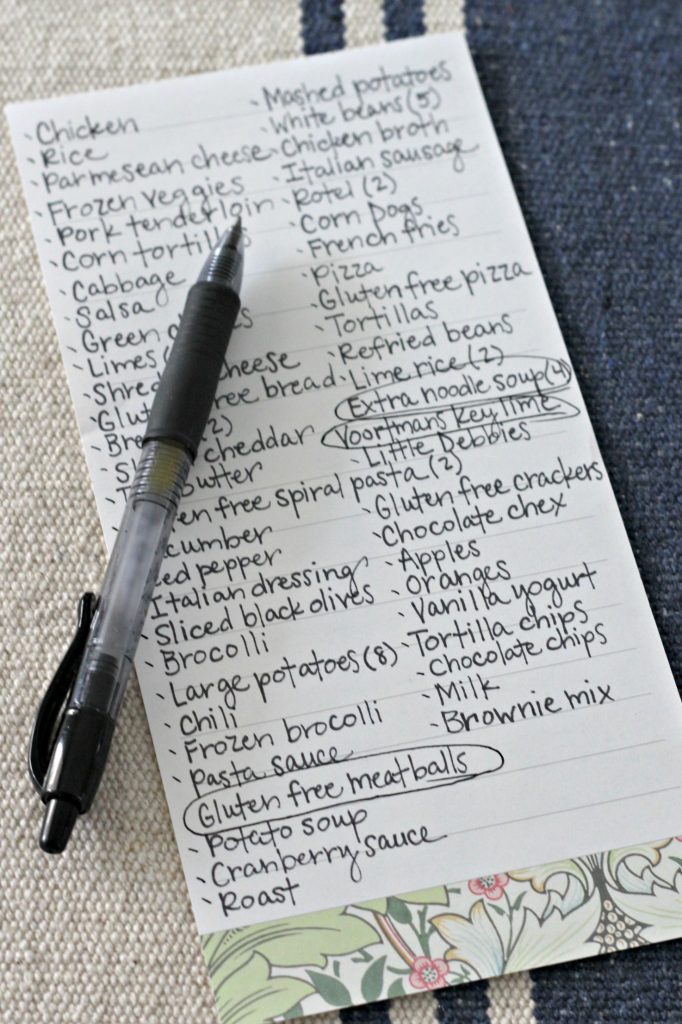 - Chicken
- Rice
- Parmesean cheese
- Frozen veggies
- Pork tenderloin
- Corn tortillas
- Cabbage
- Salsa
- Green
- Limes
cheese
free bread
(2)
cheddar
butter
free spiral pasta (2)
cumber
ed pepper
- Italian dressing
- Sliced black olives
- Brocolli
- Large potatoes (8)
- Chili
- Frozen brocolli
- Pasta sauce
Gluten free meatballs
- Potato soup
- Cranberry sauce
- Roast
- Mashed potatoes
- White beans (5)
- Chicken broth
- Italian sausage
- Rotel (2)
- Corn Dogs
- French fries
- Pizza
- Gluten free pizza
- Tortillas
- Refried beans
- Lime rice (2)
Extra noodle soup (4)
Voortmans Key lime
- Little Debbies
- Gluten free crackers
- Chocolate chex
- Apples
- Oranges
- Vanilla yogurt
- Tortilla chips
- Chocolate chips
- Milk
- Brownie mix